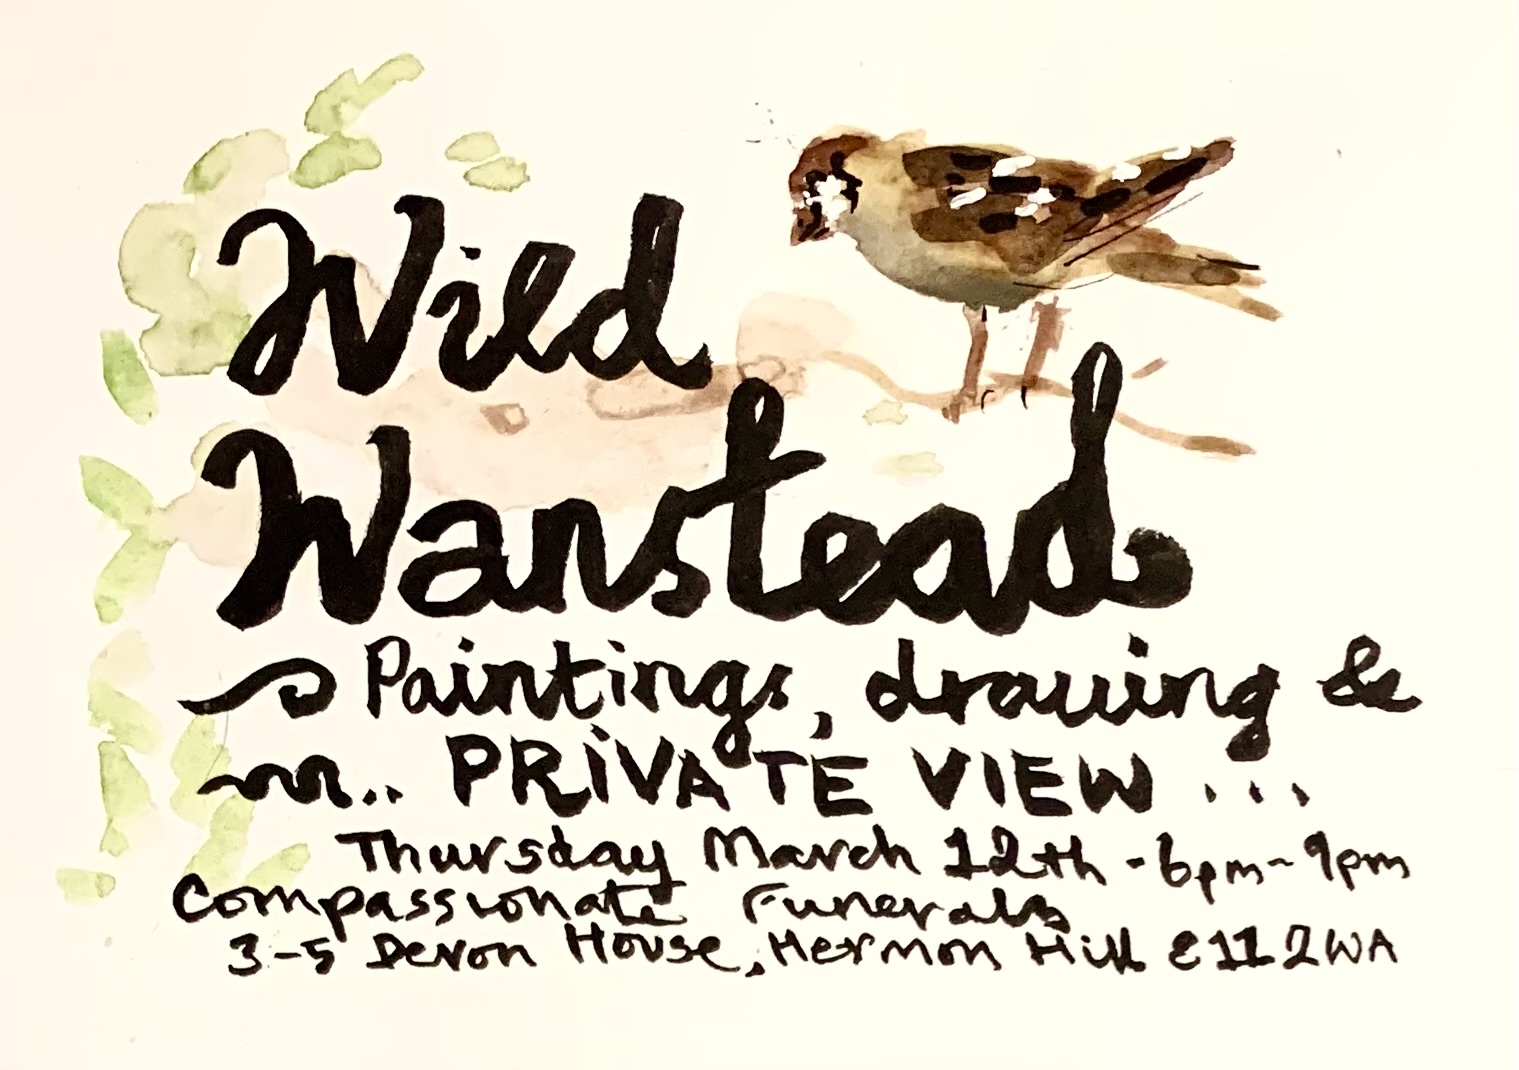 Wild
Wanstead
Paintings, drawing &
.. PRIVATE VIEW ...
Thursday March 12th - 6pm - 9pm
Compassionate Funerals
3-5 Devon House, Hermon Hill E11 2WA